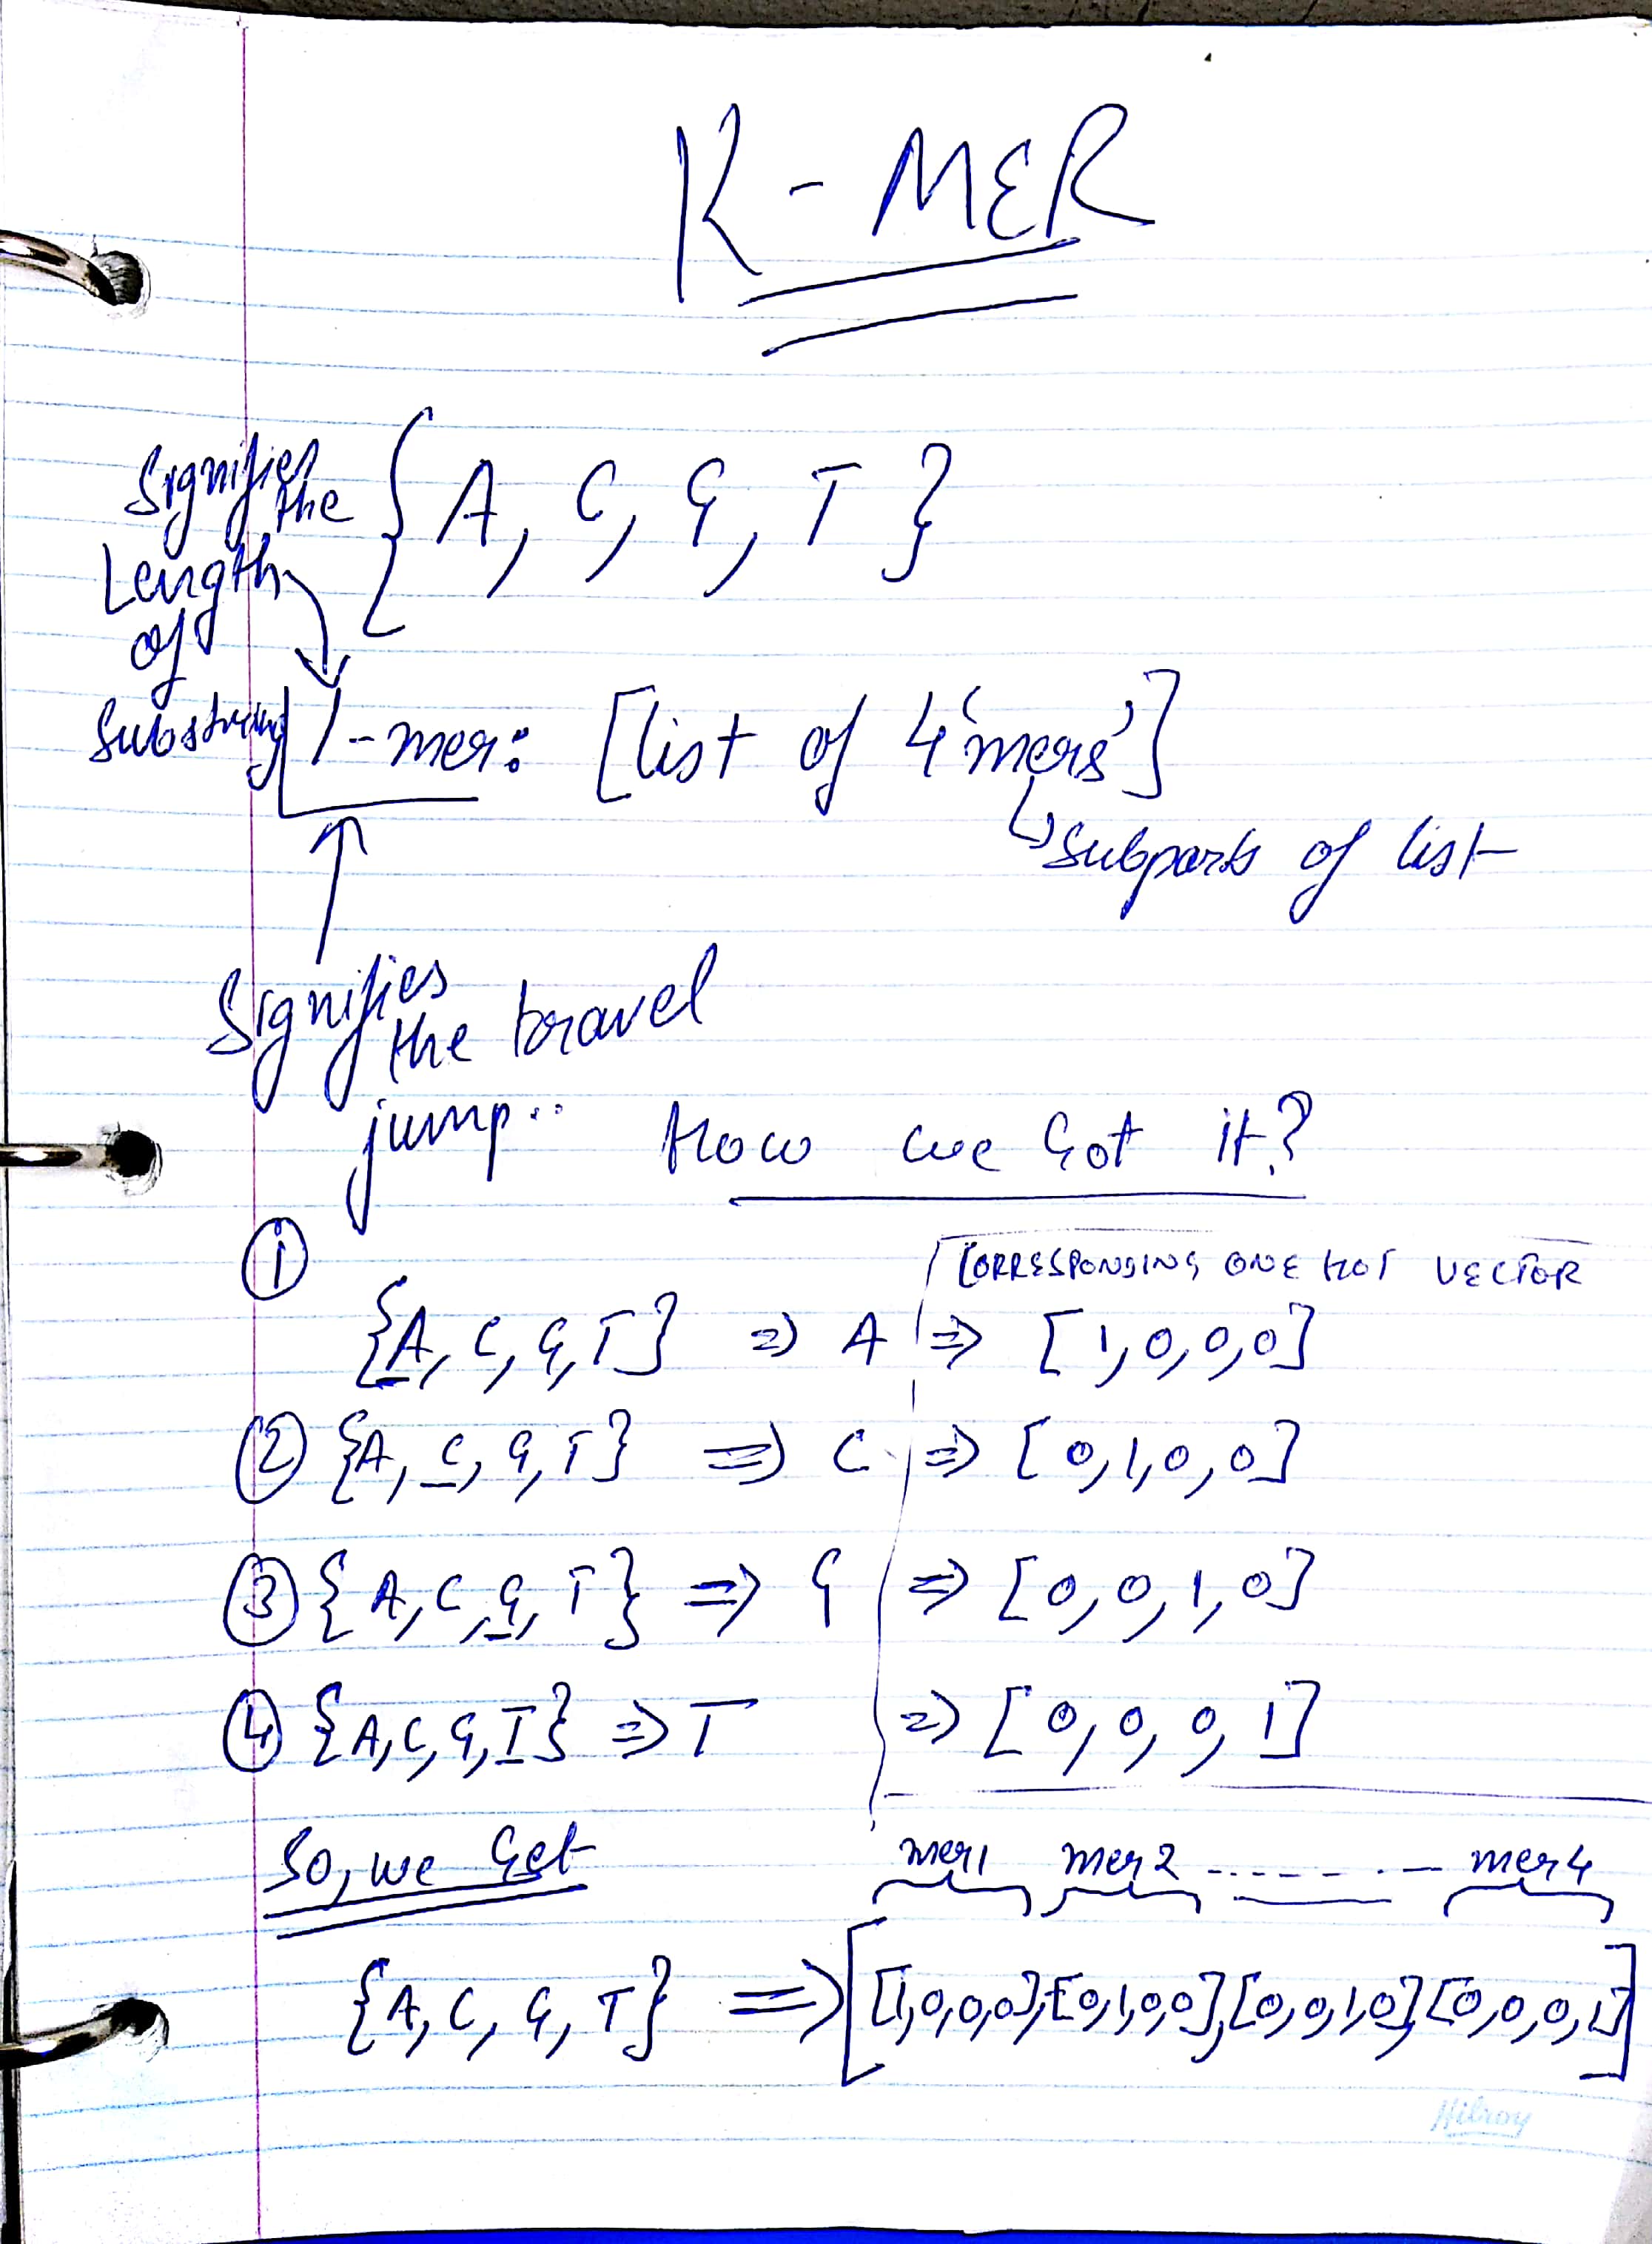 K-MER
Signifies
the
Length
of
Substring
{A, C, G, T}
1-mer: [list of 4 'mers']
↳ Subparts of list
Signifies
the travel
jump..
How we Got it?
①
CORRESPONDING ONE HOT VECTOR
{A, C, G, T} => A => [1,0,0,0]
② {A, C, G, T} => C => [0,1,0,0]
③ {A, C, G, T} => G => [0,0,1,0]
④ {A,C,G,T} => T => [0,0,0,1]
So, we Get
mer1 mer2 ------- mer4
{A, C, G, T} => [[1,0,0,0],[0,1,0,0],[0,0,1,0],[0,0,0,1]]
Hilroy